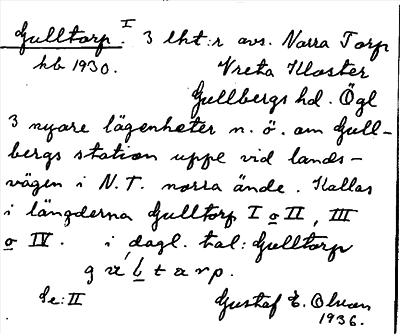 Gulltorp. I 3 lht:r avs. Norra Torp
kb 1930. Vreta Kloster
Gullbergs hd. Ögl
3 nyare lägenheter n. ö. om Gull-
bergs station uppe vid lands-
vägen i N. T. norra ände. Kallas
i längderna Gulltorp I o II, III
o IV. i dagl. tal: Gulltorp
tarp.
Se: II Gustaf E. Olson
1936.